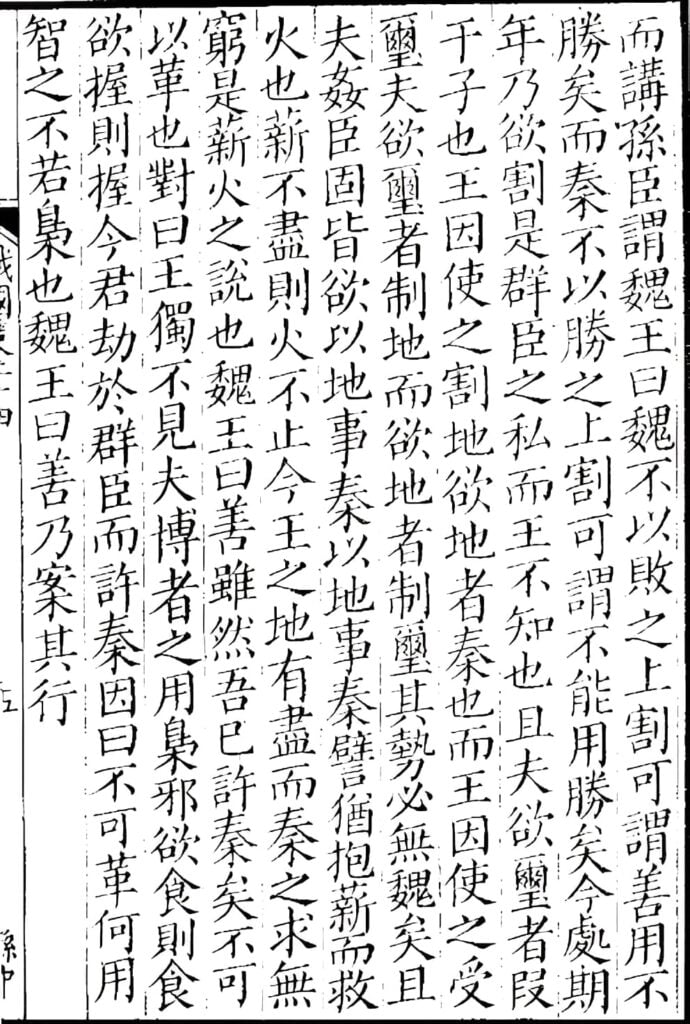 而講孫臣謂魏王曰魏不以敗之上割可謂善用不
勝矣而秦不以勝之上割可謂不能用勝矣今處期
年乃欲割是群臣之私而王不知也且夫欲璽者段
干子也王因使之割地欲地者秦也而王因使之受
璽夫欲璽者制地而欲地者制璽其勢必無魏矣且
夫姦臣固皆欲以地事秦以地事秦譬猶抱薪而救
火也薪不盡則火不止今王之地有盡而秦之求無
窮是薪火之說也魏王曰善雖然吾已許秦矣不可
以革也對曰王獨不見夫博者之用梟邪欲食則食
欲握則握今君劫於群臣而許秦因曰不可革何用
智之不若梟也魏王曰善乃案其行